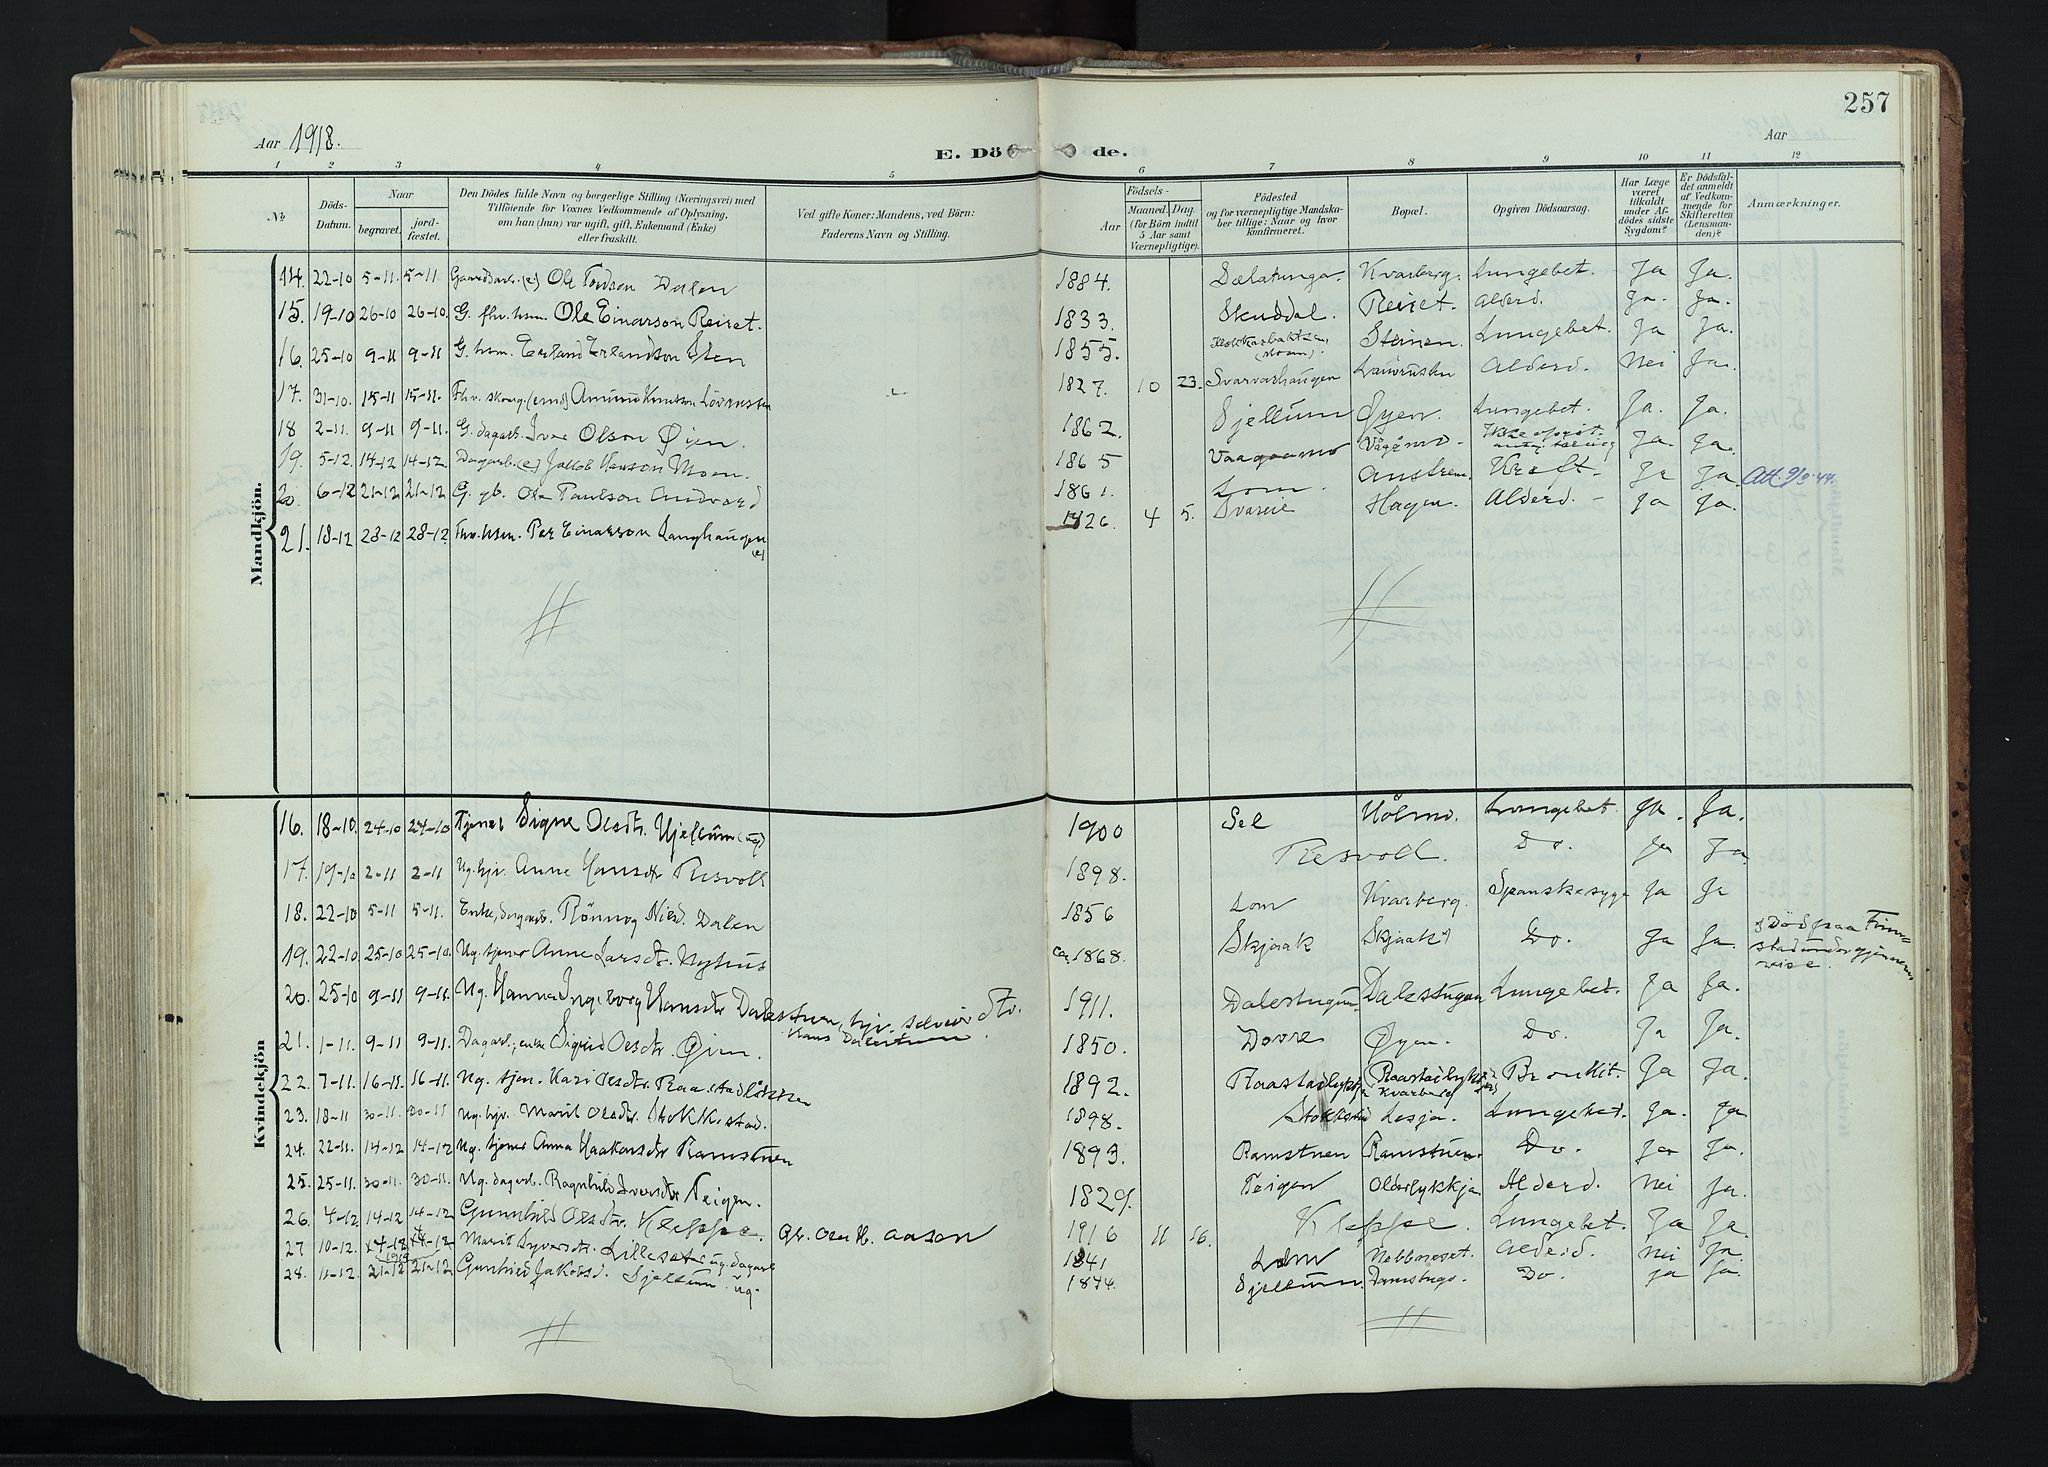 257
Aar 1918.
E. Dö de.
Aar
1 2 3 4 5 6 7 8 9 10 11 12
№
Döds-Datum.
Naar
begravet.
jord-fæstet.
Den Dödes fulde Navn og borgerlige Stilling (Næringsvei) med
Tilföiende for Voxnes Vedkommende af Oplysning,
om han (hun) var ugift, gift, Enkemand (Enke)
eller fraskilt.
Ved gifte Koner: Mandens, ved Börn:
Faderens Navn og Stilling.
Födsels-
Aar
Maaned. Dag.
(for Börn indtil
5 Aar samt
Værnepligtige).
Födested
og for værnepligtige Mandska-
ber tillige: Naar og hvor
konfirmeret.
Bopæl.
Opgiven Dödsaarsag.
Har Læge
været
tilkaldt
under Af-
dödes sidste
Sygdom?
Er Dödsfal-
det anmeldt
af Vedkom-
mende for
Skifteretten
(Lensman-
den)?
Anmærkninger.
Mandkjön.
14. 22-10 5-11. 5-11 Ole Tordson Dalen 1884. Kvarberg. Lungebet. Ja Ja.
15. 19-10 26-10 26-10. G. fhv. hsm. Ole Einarson Reiret. 1833. Skuddal. Reiret. Alderd. Ja. Ja.
16. 25-10 9-11 9-11 G. hsm. Erland Erlandson Sten 1855. Steinen. Lungebet. Ja Ja.
17. 31-10. 15-11 15-11. Amund Knutson 1827. 10 23. Svarvarhaugen Alderd. Nei Ja.
18 2-11. 9-11 9-11. G. dagarb. Iver Olson Øien. 1862. Sjellum Øyen. Lungebet. Ja. Ja.
19. 5-12. 14-12 14-12. Dagarb. (e) Jakob Hanson Moen. 1865 Vaagaamo Vågåmo Ikke Ja Ja.
20 6-12 21-12 21-12 G. gb. Ole Paulson Andvord 1861. Lom. Kreft. Ja Ja. Att. 9/3 44.
21. 18-12 28-12 28-12. Fhv. hsm. Per Einarson Langhaugen (e) 1826. 4 5. Svareie Hagen. Alderd. Ja Ja.
Kvindekjön
16. 18-10. 24-10 24-10 Tjener Signe Olsdtr. Hjellum (ug) 1900 Sel Hölmo. Lungebet. Ja. Ja.
17. 19-10 2-11 2-11 Ug. hjv. Anne Hansdtr Risvoll 1898. Resvoll. Do. Ja Ja
18. 22-10 5-11 5-11. Enke, dagarb. Rönnog Nisd. Dalen 1856 Lom Kvarberg. Spanskesyge Ja Ja
19. 22-10 25-10 25-10. Ug. tjener Anne Larsdtr. Nyhus ca. 1868. Skjaak Skjaak Do. Ja Ja. Död paa
20. 25-10 9-11 9-11. Ug. Hanna Ingeborg Hansdtr Dalestuen, hjv. selveier dtr. Hans Dalestuen. 1911. Dalestugun Dalestugun Lungebet. Ja Ja.
21. 1-11. 9-11 9-11. Dagarb., enke Sigrid Olsdtr. Øien. 1850. Dovre Øyen. Do. Ja Ja.
22. 7-11. 16-11. 16-11. Ug. tjen. Kari Olsdtr. Raastadløkken 1892. Kvarberg Bronkit. Ja Ja.
23. 18-11 30-11. 30-11 Ug. hjv. Marit Olsdtr. Stokkstad. 1898. Lesja. Lungebet. Ja. Ja
24. 22-11. 14-12 14-12 Ug. tjener Anna Haakonsdtr Ramstuen 1893. Ramstuen Ramstuen. Do. Ja Ja.
25. 25-11. 30-11. 30-11. Ug. dagarb. Ragnhild Iversdtr Teigen. 1829. Teigen Olderlykkja Alderd. Nei Ja.
26. 4-12 14-12 14-12 Gunnhild Olsdtr. Kleppe. Gb. Ole H. Aason 1916 11 16. Kleppe. Lungebet. Ja Ja.
27 10-12. 14-12 14-12 Marit Syversdtr. ug. dagarb 1841 Lom Alderd. Nei Ja.
28. 11-12. 21-12 21-12 Jakobsd. Sjellum ug. 1874. Sjellum. Do. Ja Ja.